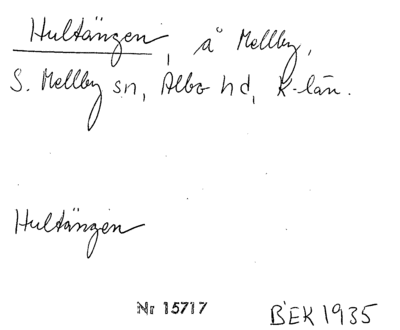 Hultängen, å Mellby,
S. Mellby sn, Albo hd, K-län.
Hultängen
Nr 15717
BEK 1935